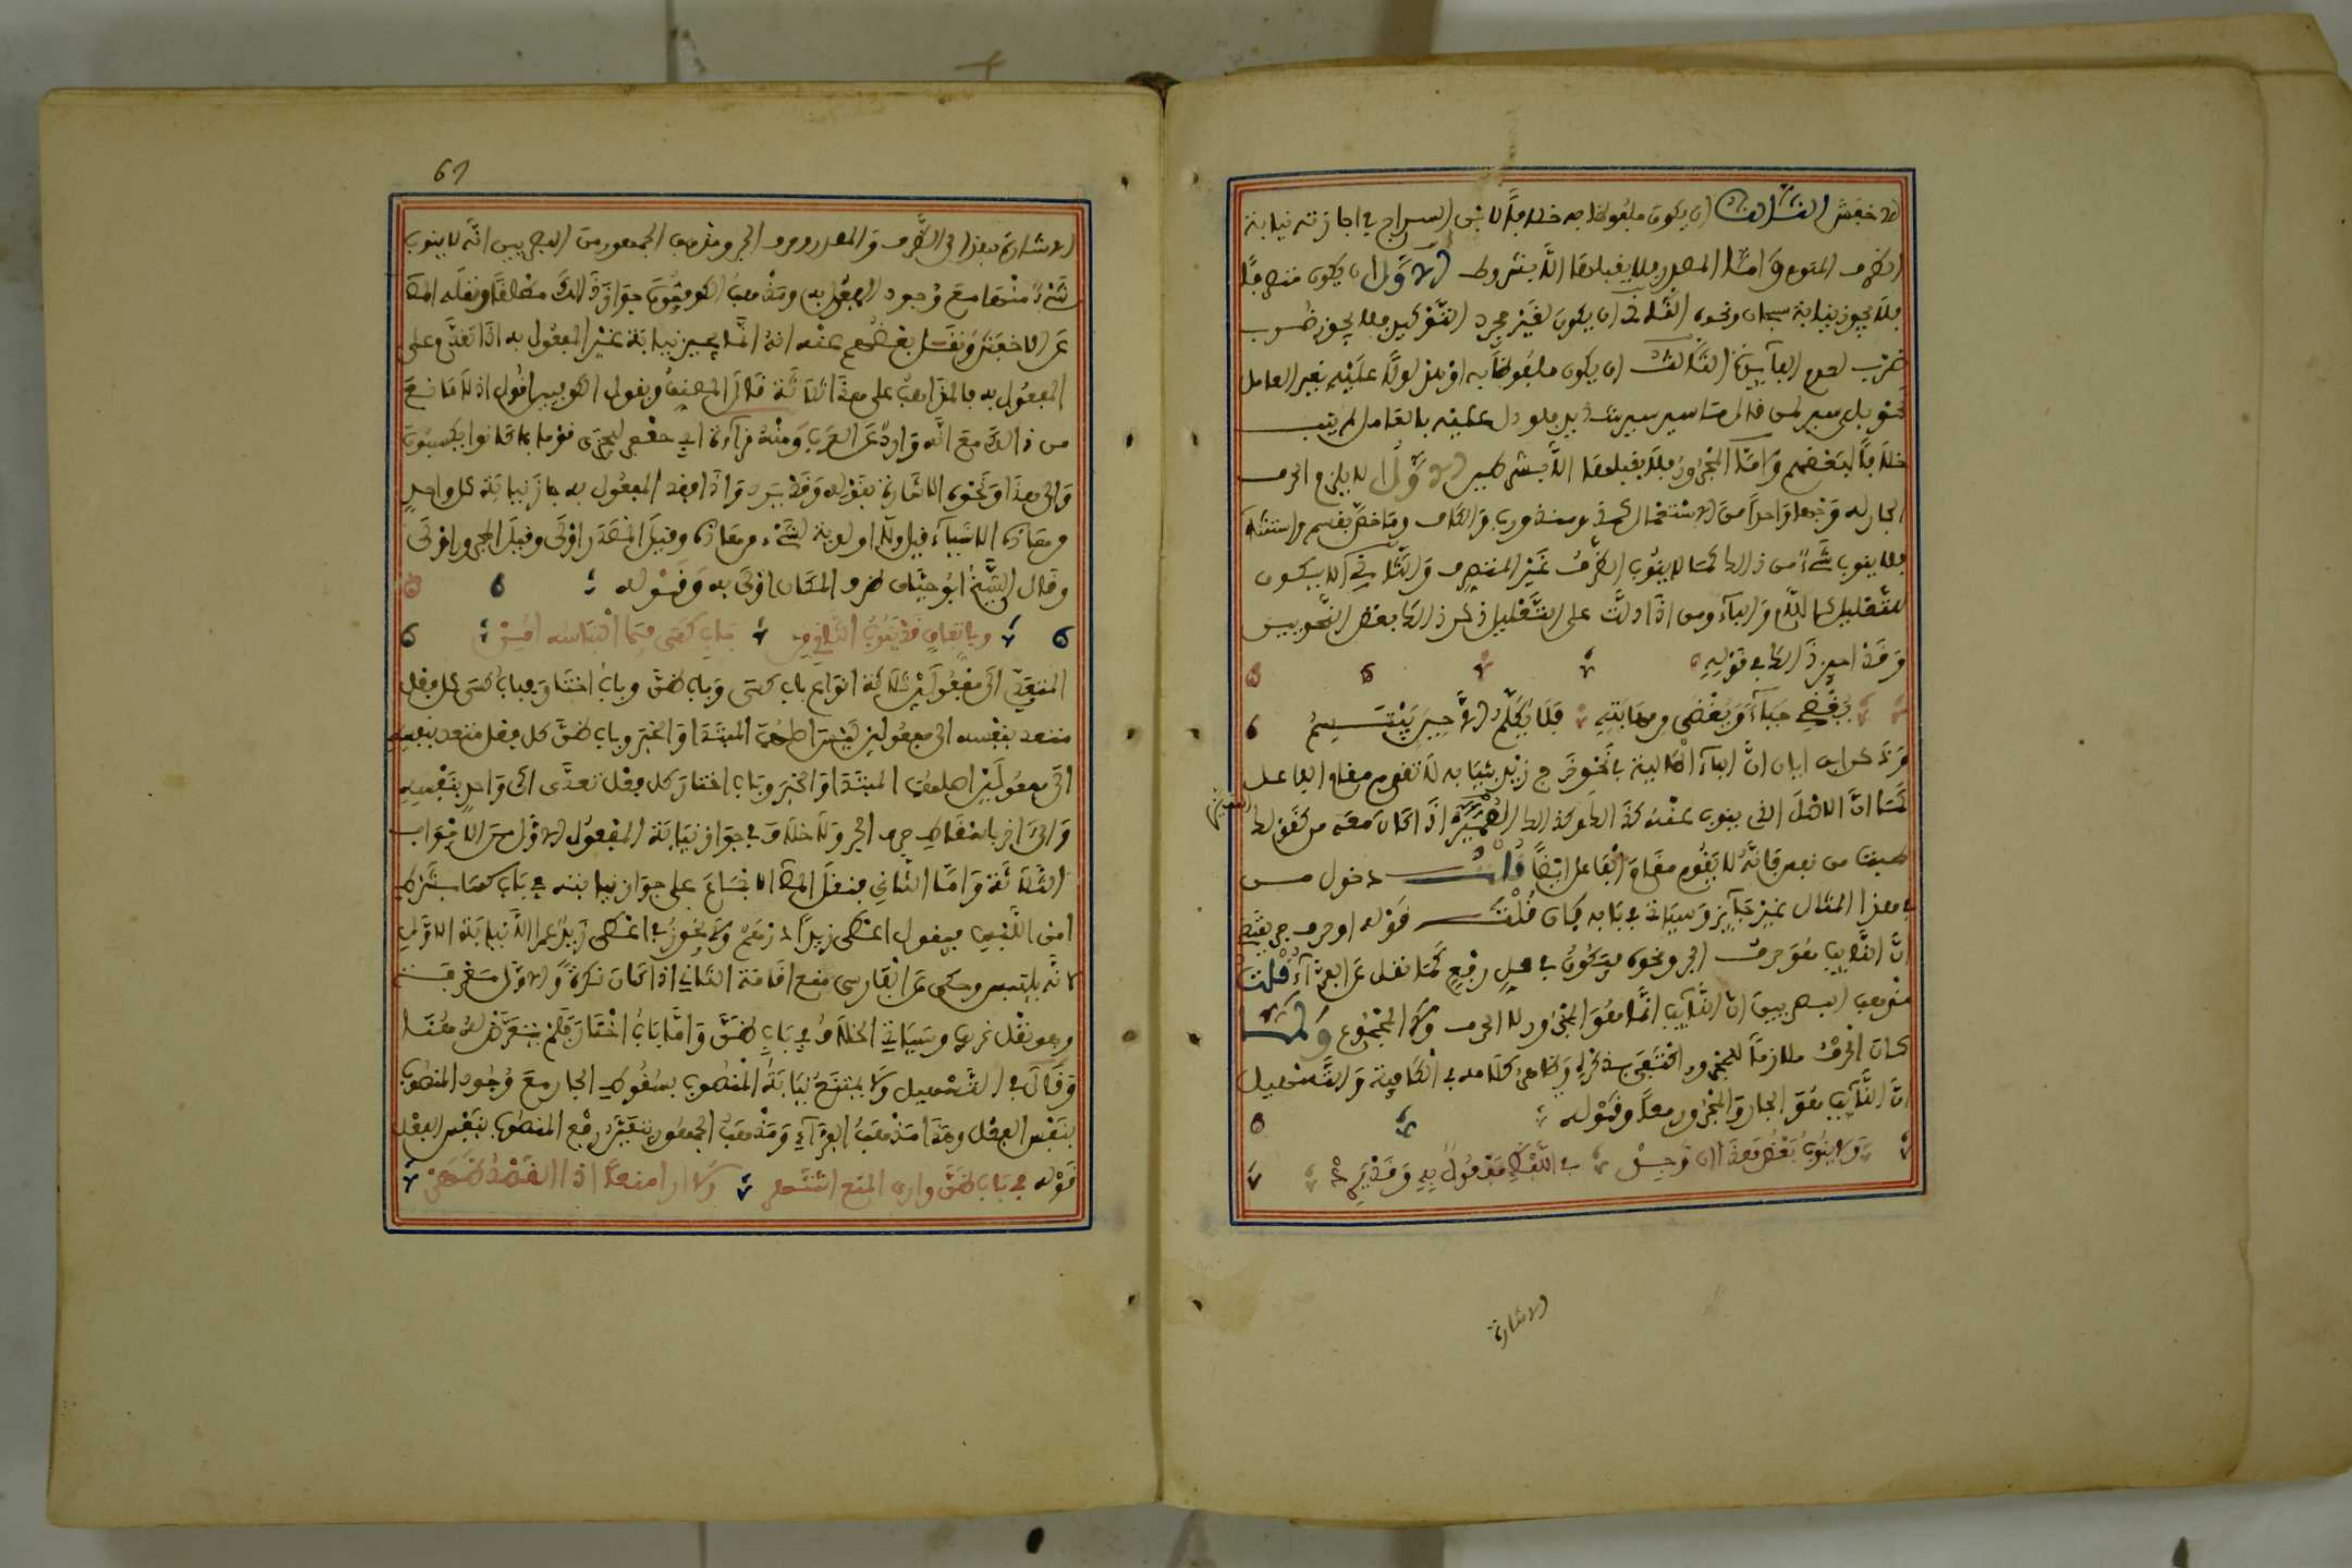 للاخفش الثالث ان يكون ملفوظا به خلافا لابن السراج في اجازته نيابة
الظرف المنوي وامّا المصدر فلا يقبلها الّا بشروط الاوّل ان يكون متصرفا
فلا يجوز نيابة سبحان ونحوه الثاني ان يكون لغير مجرد التوكيد فلا يجوز ضرب
ضرب لعدم الفايدة الثالث ان يكون ملفوظا به او مدلولا عليه بغير العامل
نحو بلى سير لمن قال ما سير سير شديد فلو دل عليه بالعامل لم ينب
خلافا لبعضهم وامّا المجرور فلا يقبلها الّا بشرطين الاوّل ان لا يلزم الحرف
الجار له وجها واحدا من الاستعمال كمذ ومنذ ورب والكاف وما خصّ بقسم واستثناء
فلا ينوب شيء من ذلك كما لا ينوب الظرف غير المتصرف والثاني الّا يكون
للتعليل كاللام والباء ومن اذا دلّت على التعليل ذكر ذلك بعض النحويين
وقد اجيز ذلك في قوله
يغضي حياء ويغضى من مهابته فلا يكلّم الّا حين يبتسم
وذكر ابن اياز انّ الباء الحالية في نحو خرج زيد بثيابه لا تقوم مقام الفاعل
كما انّ الاصل الذي ينوب عنه كذلك وكذلك المميّز اذا كان معه من كقولك
طبت من نفس فانّه لا يقوم مقام الفاعل ايضا قلت دخول من
في هذا المثال غير جايز وسياتي في بابه بيان قلت قوله او حرف جر يقتضي
انّ النايب هو حرف الجر ونحوه فيكون في محل رفع كما نقل عن الفراء قلت
مذهب البصريين انّ النايب انّما هو المجرور لا الحرف ولا المجموع ولما
كان الحرف ملازما للمجرور اكتفى بذكره وظاهر كلامه في الكافية والتسهيل
انّ النايب هو الجار والمجرور معا وقوله
ولا ينوب بعض هذا ان وجد في اللفظ مفعول به وقد يرد
الاشارة
61
الاشارة بهذا الى الظرف والمصدر وحرف الجر ومذهب الجمهور من البصريين انّه لا ينوب
شيء منها مع وجود المفعول به ومذهب الكوفيون جواز ذلك مطلقا ونقله المص
عن الاخفش ونقل بعضهم عنه انه انّما يجيز نيابة غير المفعول به اذا تقدّم على
المفعول به فالمذاهب على هذا ثلاثة قال المصنف وبقول الكوفيين اقول اذ لا مانع
من ذلك مع انّه وارد عن العرب ومنه قراءة ابي جعفر ليجزى قوما بما كانوا يكسبون
والى هذا ونحوه الاشارة بقوله وقد يرد واذا فقد المفعول به جاز نيابة كل واحد
ومن هاذه الاشياء قيل ولا اولوية لشيء من هاذه وقيل المصدر اولى وقيل المجرور اولى
وقال الشيخ ابو حيان ظرف المكان اولى به وقوله
وباتفاق قد ينوب الثان من باب كسى فيما التباسه امن
المتعدي الى مفعولين ثلاثة انواع باب كسى وباب ظن وباب اختار فباب كسى كل فعل
متعد بنفسه الى مفعولين ليس اصلهما المبتدا والخبر وباب ظن كل فعل متعد بنفسه
الى مفعولين اصلهما المبتدا والخبر وباب اختار كل فعل تعدّى الى واحد بنفسه
والى اخر باسقاط حرف الجر ولا خلاف في جواز نيابة المفعول الاوّل من الابواب
الثلاثة وامّا الثاني فنقل المص الاجماع على جواز نيابته في باب كسا بشرط
امن اللبس فيقول اعطى زيدا درهم ولا يجوز في اعطى زيد عمرا الّا نيابة الاول
لانّه يلتبس وحكى عن الفارسي منع اقامة الثاني اذا كان نكرة والاوّل معرفة
وهو نقل غريب وسياتي الخلاف في باب ظن وامّا باب اختار فلم يتعرّض له هنا
وقال في التسهيل ولا يمتنع نيابة المنصوب بسقوط الجار مع وجود المنصوب
بنفس الفعل وهذا مذهب الفراء ومذهب الجمهور يتعيّن رفع المنصوب بنفس الفعل
قوله في باب ظن وارى المنع اشتهر ولا ارى منعا اذا القصد ظهر